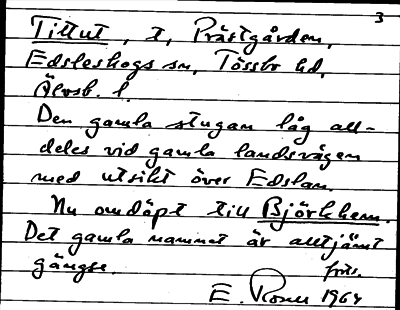 3
Tittut, t, Prästgården,
Edsleskogs sn, Tössbo hd,
Älvsb. l.
Den gamla stugan låg all-
deles vid gamla landsvägen
med utsikt över Edslan.
Nu omdöpt till Björkhem.
Det gamla namnet är alltjämt
gängse.
forts.
E. 1964